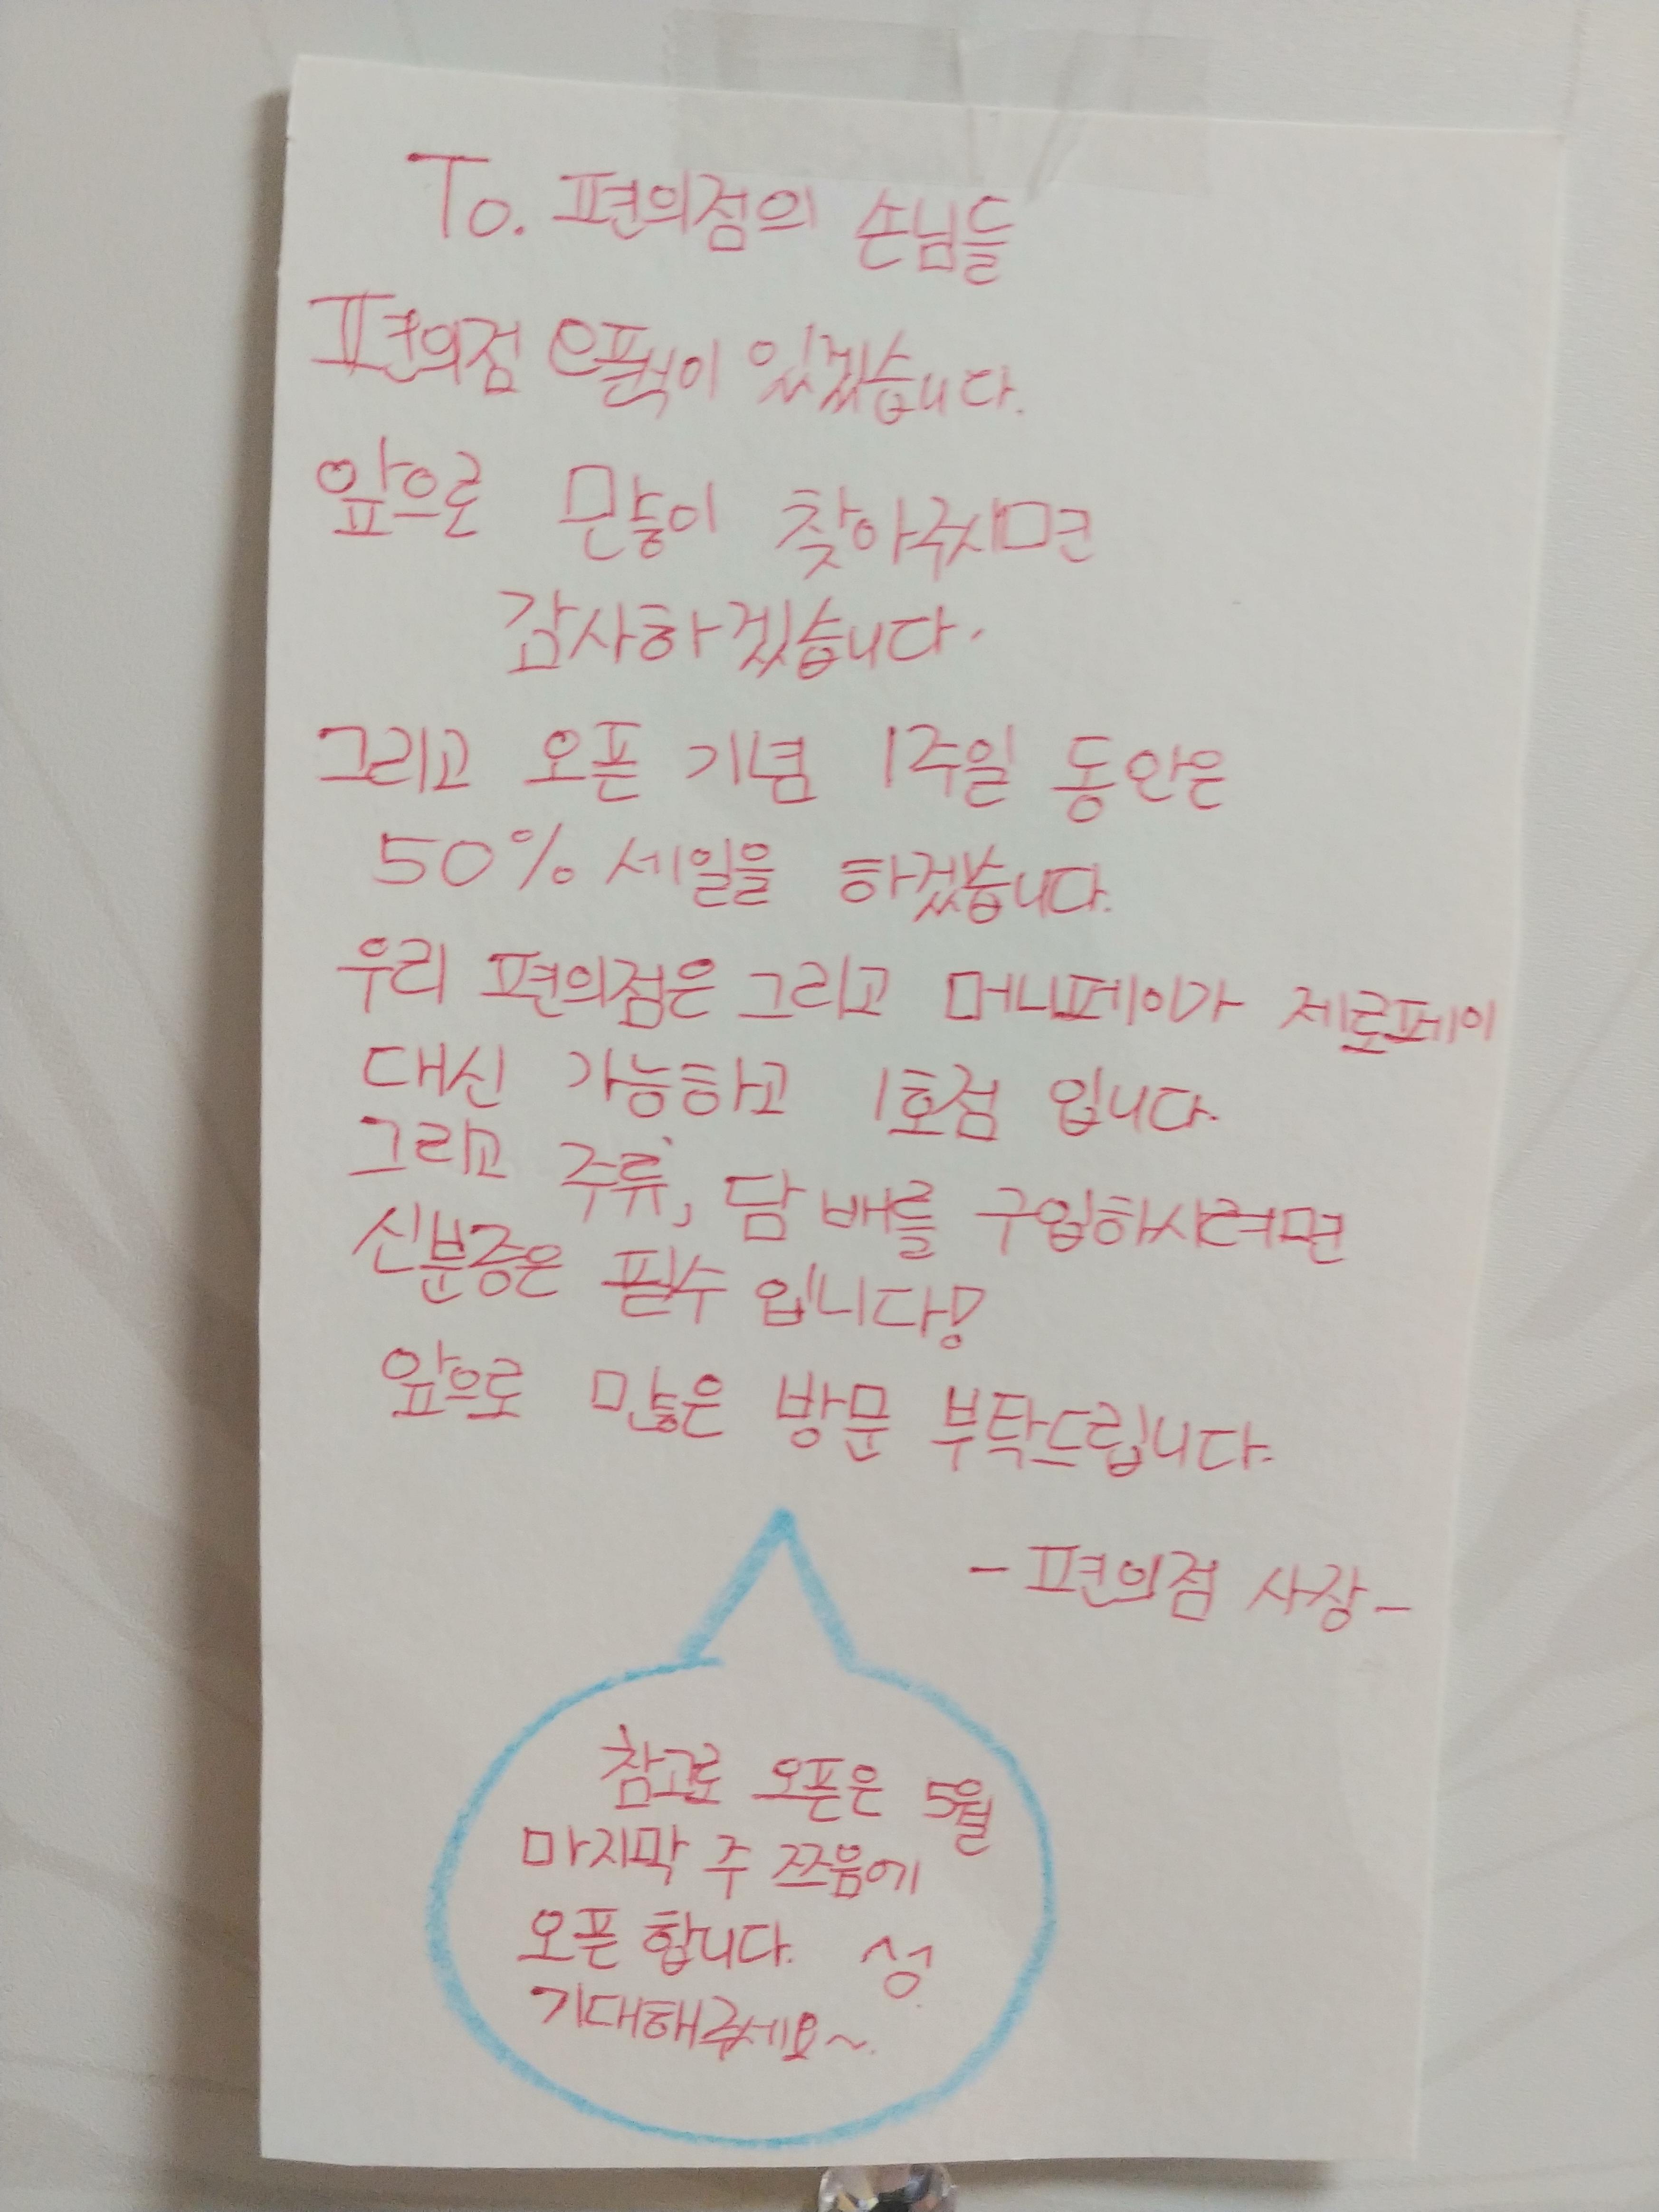 To. 편의점의 손님들
편의점 오픽이 있겠습니다.
앞으로 많이 찾아주시면
감사하겠습니다.
그리고 오픈 기념 1주일 동안은
50% 세일을 하겠습니다.
우리 편의점은 그리고 머니페이가 제로페이
대신 가능하고 1호점 입니다.
그리고 주류, 담배를 구입하시려면
신분증은 필수 입니다!
앞으로 많은 방문 부탁드립니다.
- 편의점 사장 -
참고로 오픈은 5월
마지막 주 쯔음에
오픈 합니다. 성
기대해주세요~